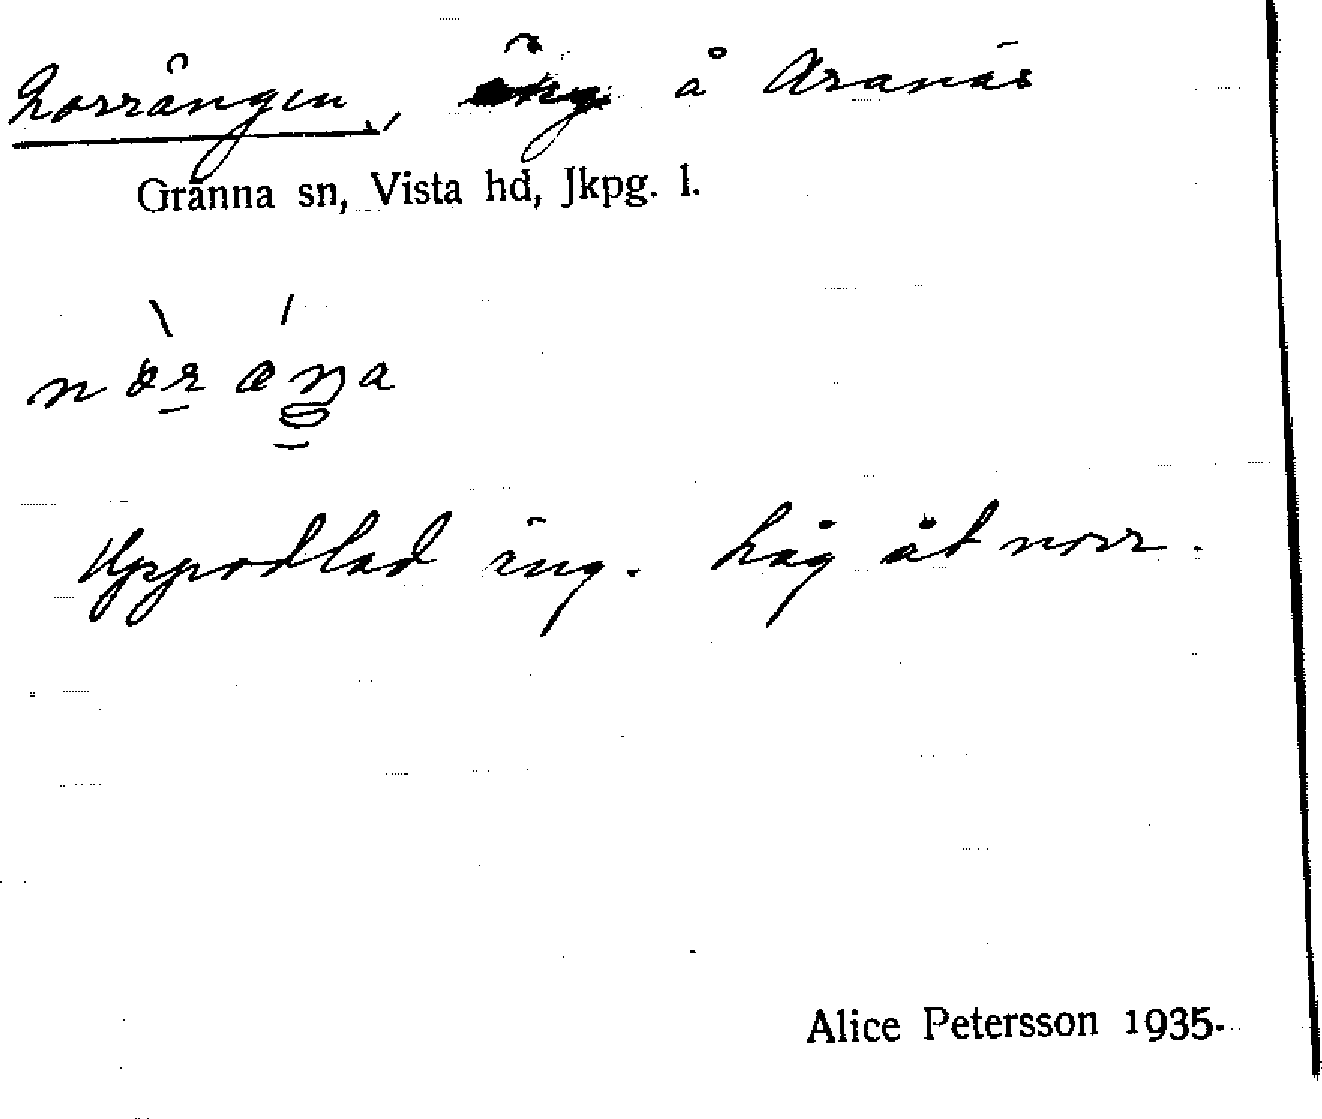 Norrängen, äng å Aranäs
Gränna sn, Vista hd, Jkpg. l.
Uppodlad äng. Låg åt norr.
Alice Petersson 1935.